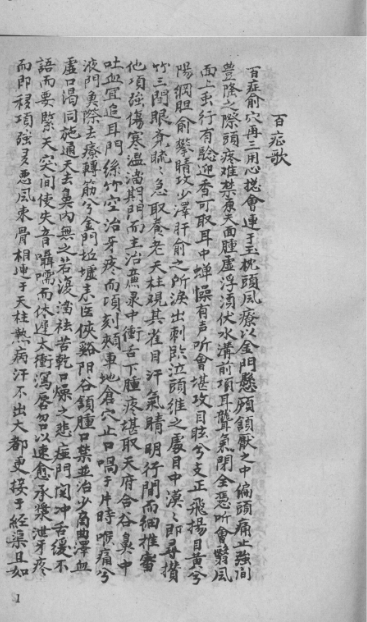 百症歌
百症俞穴再三用心䆁會連于玉枕頭風療以金門懸顱頷厭之中偏頭痛止強間
豊隆之際頭疼难禁原夫面腫虛浮須伏水溝前項耳聾氣閉全憑听會翳風
面上虫行有驗迎香可取耳中蟬噪有声听會堪攻目眩兮支正飛揚目黃兮
陽綱胆俞攀睛攻少澤肝俞之所淚出刺臨泣頭維之處目中漠漠即尋攢
竹三間眼𥆨𥆨急取養老天柱覌其雀目汗氣睛明行間而細推審
他項強傷寒溫溜期門而主治廉泉中衝舌下腫疼堪取天府合谷鼻中
吐血宜追耳門絲竹空治牙疼而項刻頰車地倉穴止口喎于片時喉痛兮
液門魚際去療轉筋兮金門坵墟志医俠谿阳谷頷腫口禁並治少商曲澤血
虛口渴同施通天去鼻內無之若復溜祛舌乾口燥之悲瘂門関冲舌缓不
語而要緊天突间使失音囁嚅而休迟太衝瀉唇喎以速愈承漿泄牙疼
而即移項強多悪風束骨相連于天柱熱病汗不出大都更接于経渠且如
1